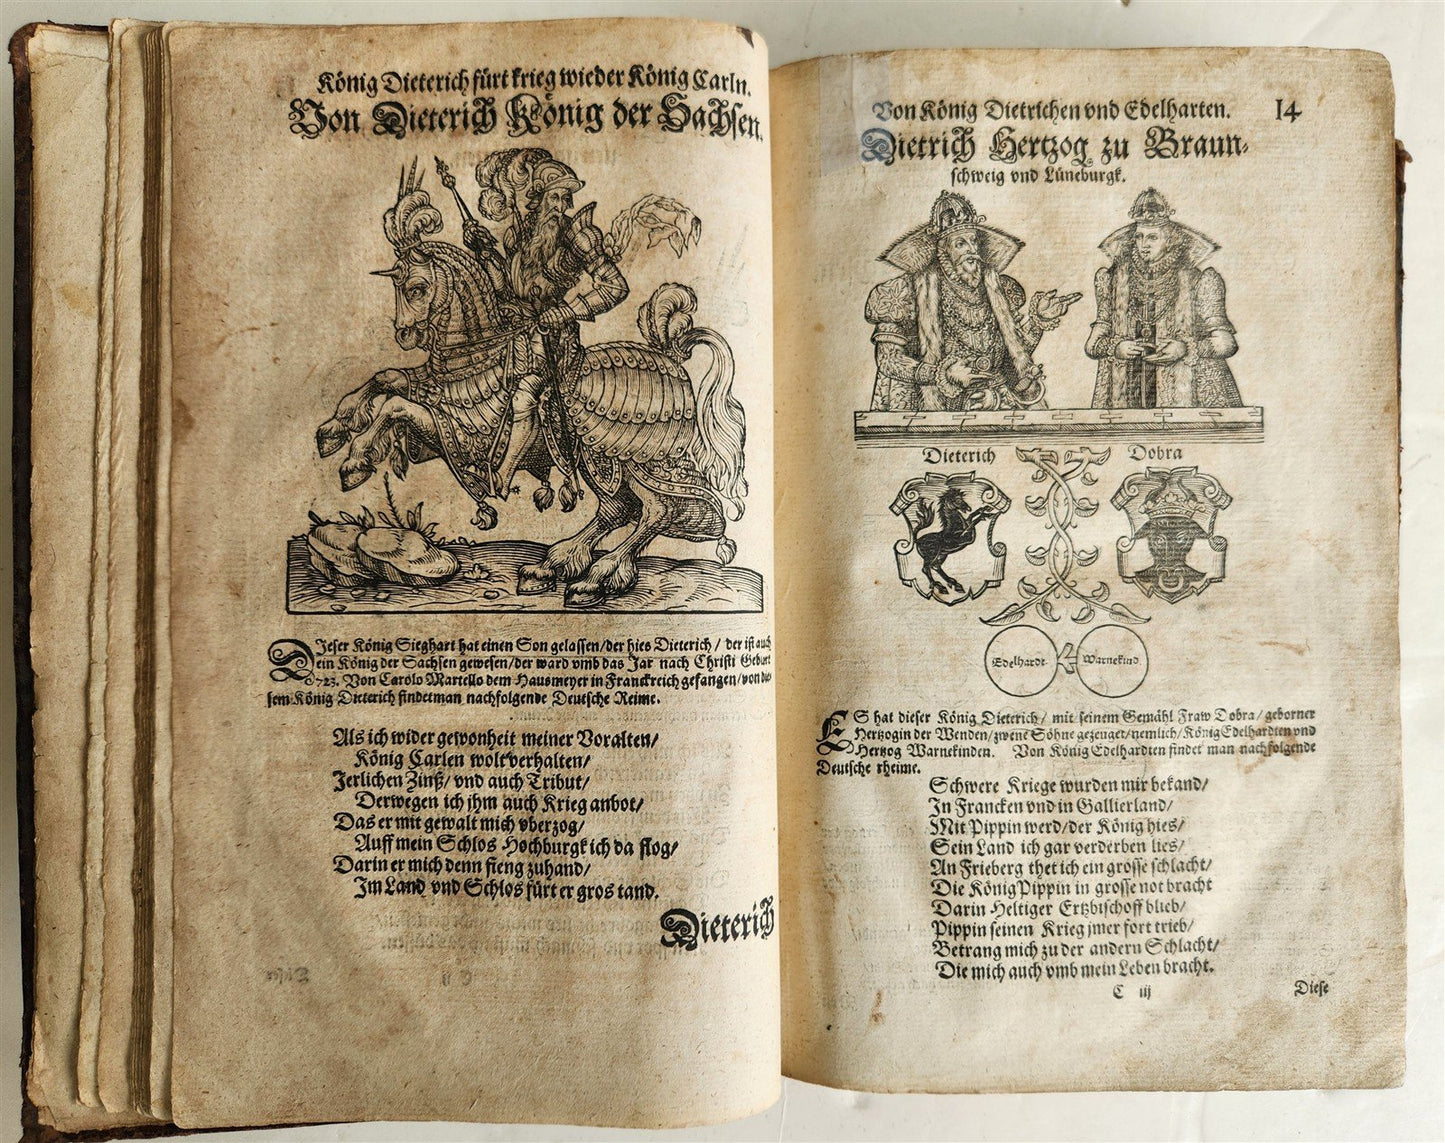 König Dieterich fürt krieg wieder König Carln.
Von Dieterich König der Sachsen.
DJeser König Sieghart hat einen Son gelassen/der hies Dieterich / der ist auch
ein König der Sachsen gewesen/der ward vmb das Jar nach Christi Geburt
723. Von Carolo Martello dem Hausmeyer in Franckreich gefangen/von die-
sem König Dieterich findet man nachfolgende Deutsche Reime.
Als ich wider gewonheit meiner Voralten/
König Carlen wolt verhalten/
Jerlichen Zinß/ vnd auch Tribut/
Derwegen ich jhm auch Krieg anbot/
Das er mit gewalt mich vberzog/
Auff mein Schlos Hochburgk ich da flog/
Darin er mich denn fieng zuhand/
Im Land vnd Schlos fürt er gros tand.
Dieterich
Von König Dietrichen vnd Edelharten. 14
Dietrich Hertzog zu Braun-
schweig vnd Lüneburgk.
Dieterich Dobra
Edelhardt. Warnekind.
ES hat dieser König Dieterich/ mit seinem Gemähl Fraw Dobra/ geborner
Hertzogin der Wenden/zwene Söhne gezeuget/nemlich/König Edelhardten vnd
Hertzog Warnekinden. Von König Edelhardten findet man nachfolgende
Deutsche rheime.
Schwere Kriege wurden mir bekand/
In Francken vnd in Gallierland/
Mit Pippin werd/der König hies/
Sein Land ich gar verderben lies/
An Frieberg thet ich ein grosse schlacht/
Die König Pippin in grosse not bracht
Darin Heltiger Ertzbischoff blieb/
Pippin seinen Krieg jmer fort trieb/
Betrang mich zu der andern Schlacht/
Die mich auch vmb mein Leben bracht.
C iij Diese